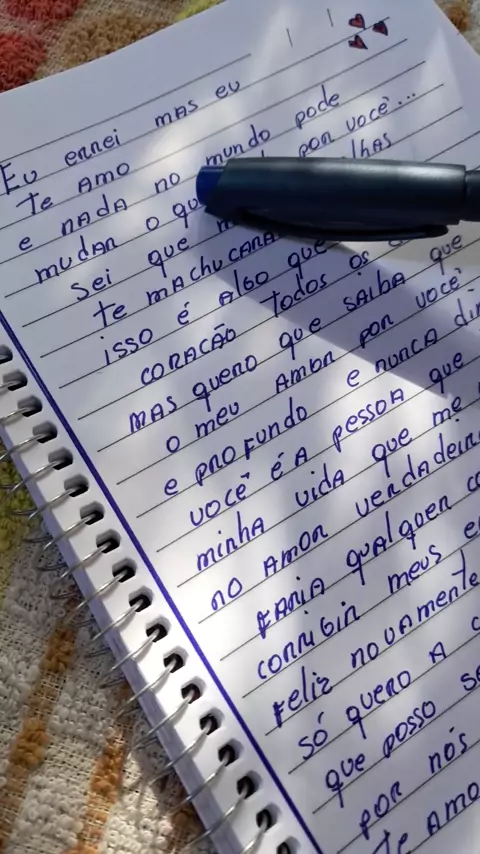 Eu errei mas eu
te amo
e nada no mundo pode
mudar o por você...
Sei que
te machucara
isso é algo que
coração todos os
mas quero que saiba que
o meu amor por você
e profundo e nunca
você é a pessoa que
minha vida que me
no amor
faria qualquer
corrigir meus
feliz novamente
só quero a
que posso
por nós
te amo